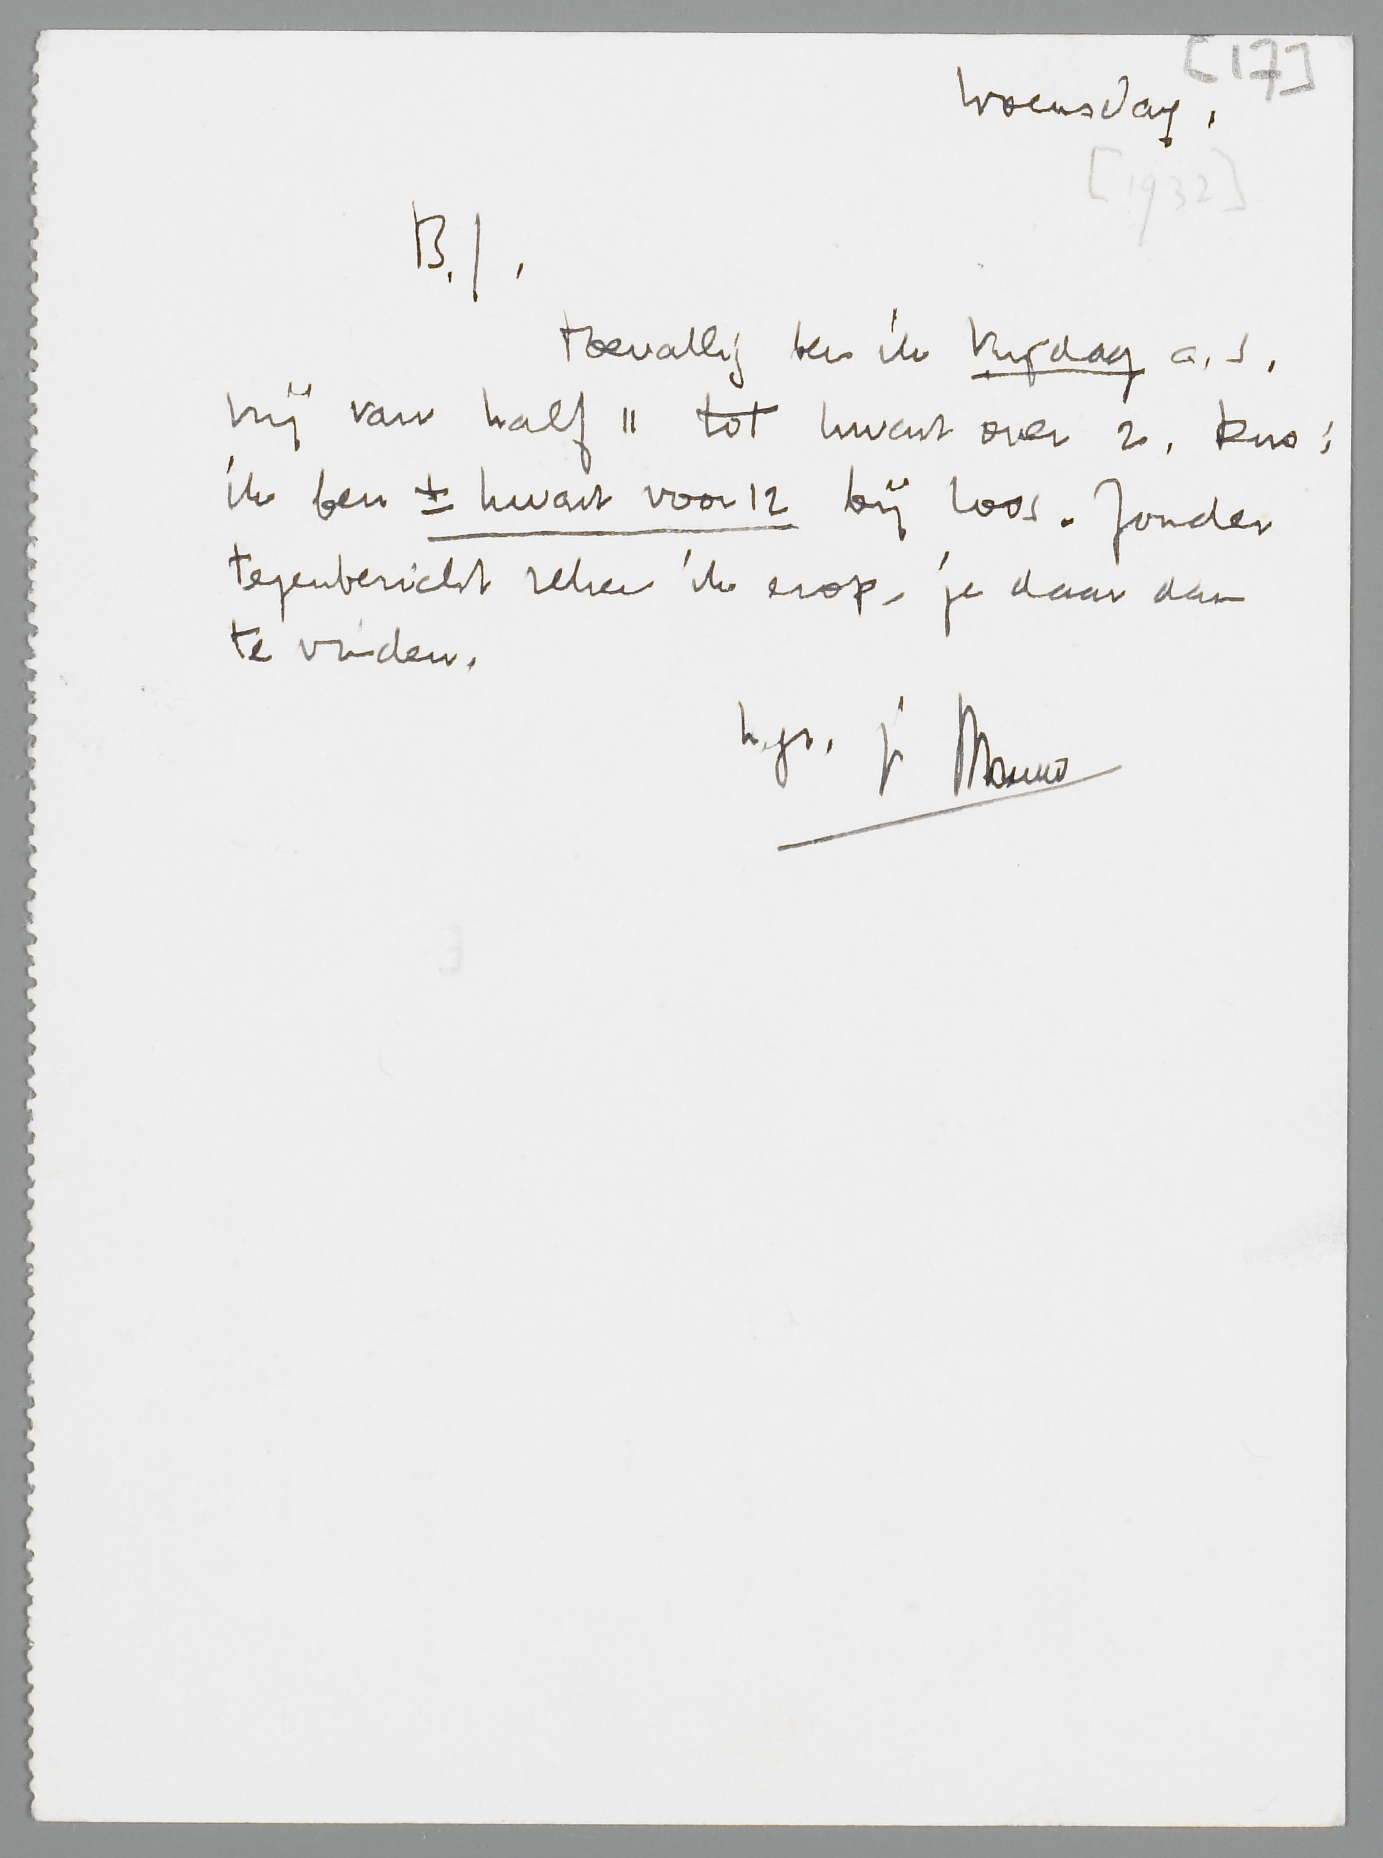 [17]
Woensdag,
[1932]
B. J.,
toevallig ben ik vrijdag a.s.
vrij van half 11 tot kwart over 2. Dus:
ik ben ± kwart voor 12 bij Loos. Zonder
tegenbericht reken ik erop, je daar dan
te vinden.
h.gr. j Menno